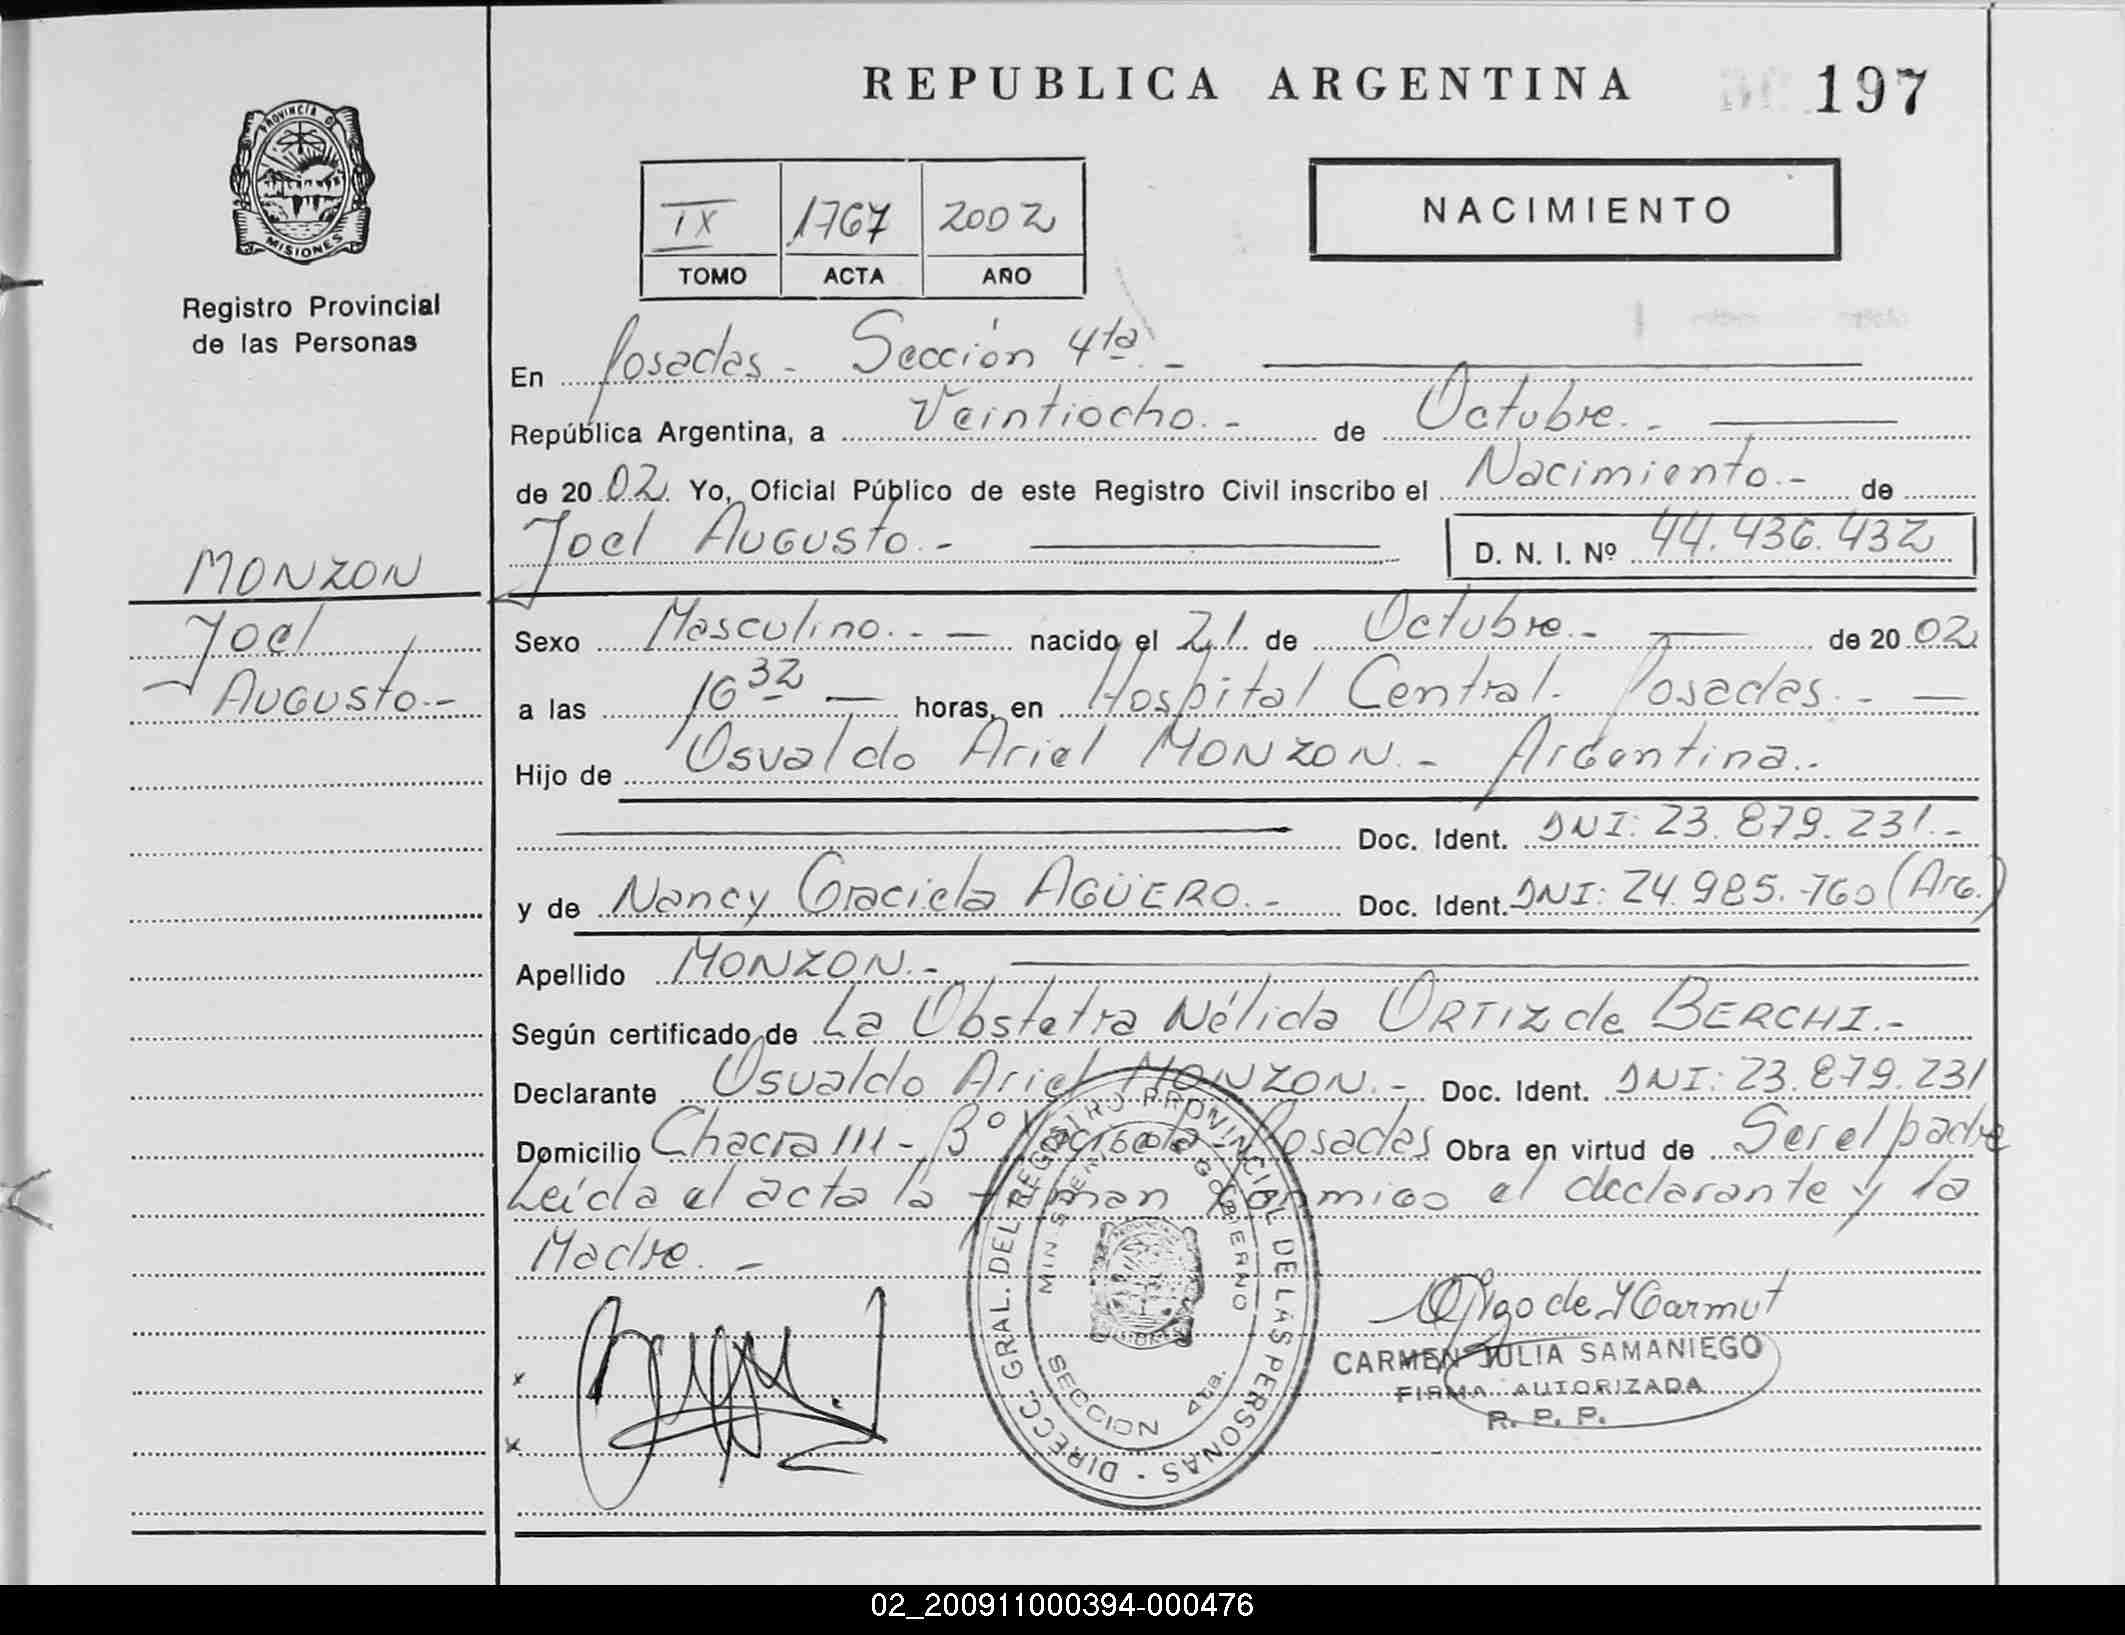 REPUBLICA ARGENTINA 197
PROVINCIA DE MISIONES
Registro Provincial
de las Personas
NACIMIENTO
IX 1767 2002
TOMO ACTA AÑO
En Posadas - Sección 4ta. -
República Argentina, a Veintiocho. - de Octubre. -
de 2002. Yo, Oficial Público de este Registro Civil inscribo el Nacimiento. - de
Joel Augusto. - D. N. I. Nº 44.436.432
MONZON
Joel
Augusto. -
Sexo Masculino. - nacido el 21 de Octubre. - de 2002
a las 16 32 horas, en Hospital Central. Posadas. -
Hijo de Osvaldo Ariel MONZON. - Argentina. -
Doc. Ident. DNI: 23.879.231. -
y de Nancy Graciela AGÜERO. - Doc. Ident. DNI: 24.985.760 (Arg.)
Apellido MONZON. -
Según certificado de La Obstetra Nélida ORTIZ de BERCHI. -
Declarante Osvaldo Ariel MONZON. - Doc. Ident. DNI: 23.879.231
Domicilio Chacra 111 - Bº Posadas Obra en virtud de Ser el padre
Leída el acta la firman conmigo el declarante y la
Madre. -
DIRECC. GRAL. DEL REGISTRO PROVINCIAL DE LAS PERSONAS
MINISTERIO DE GOBIERNO
SECCION 4ta.
CARMEN JULIA SAMANIEGO
FIRMA AUTORIZADA
R. P. P.
x
x
02_200911000394-000476